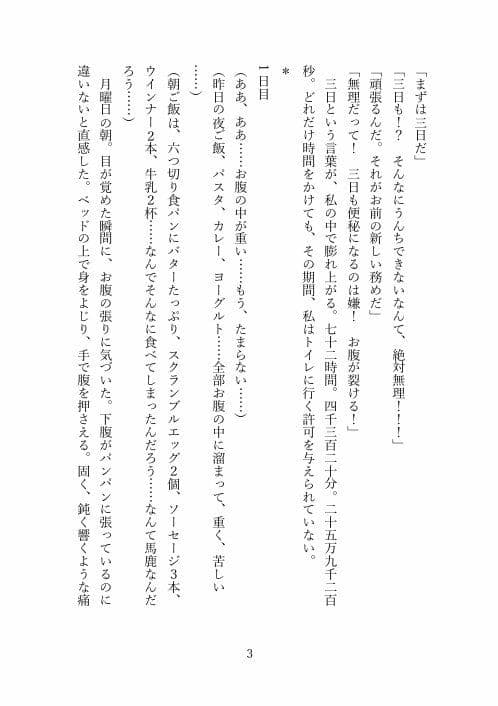 「まずは三日だ」
「三日も！？　そんなにうんちできないなんて、絶対無理！！！」
「頑張るんだ。それがお前の新しい務めだ」
「無理だって！　三日も便秘になるのは嫌！　お腹が裂ける！」
　三日という言葉が、私の中で膨れ上がる。七十二時間。四千三百二十分。二十五万九千二百
秒。どれだけ時間をかけても、その期間、私はトイレに行く許可を与えられていない。
＊
１日目
（ああ、ああ……お腹の中が重い……もう、たまらない……）
（昨日の夜ご飯、パスタ、カレー、ヨーグルト……全部お腹の中に溜まって、重く、苦しい
……）
（朝ご飯は、六つ切り食パンにバターたっぷり、スクランブルエッグ２個、ソーセージ３本、
ウインナー２本、牛乳２杯……なんでそんなに食べてしまったんだろう……なんて馬鹿なんだ
ろう……）
　月曜日の朝。目が覚めた瞬間に、お腹の張りに気づいた。下腹がパンパンに張っているのに
違いないと直感した。ベッドの上で身をよじり、手で腹を押さえる。固く、鈍く響くような痛
3